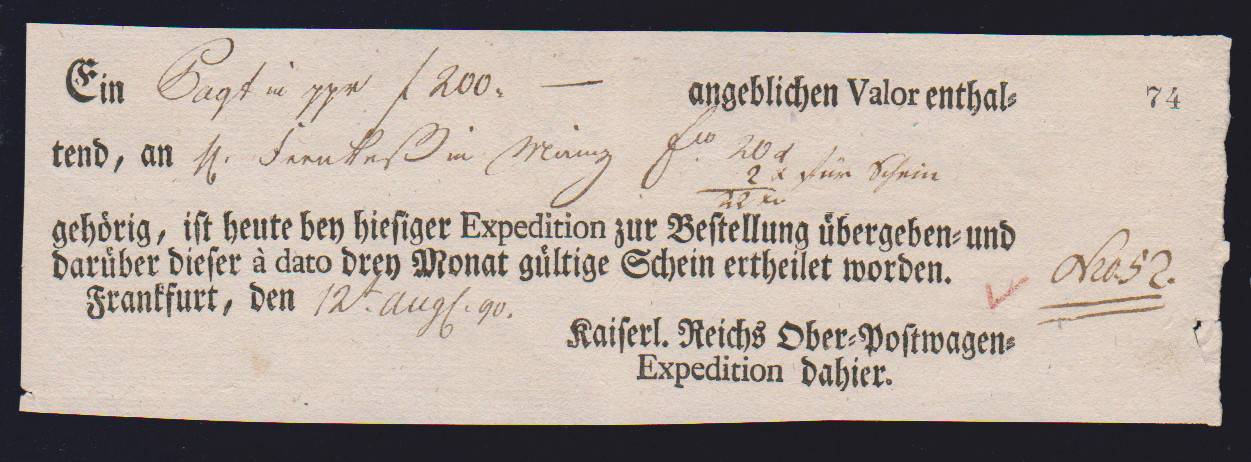 Ein Paqt in ppr f 200. — angeblichen Valor enthal=
74
tend, an H. in Maintz fco 20 x
2 x für Schein
22 xr
gehörig, ist heute bey hiesiger Expedition zur Bestellung übergeben= und
darüber dieser à dato drey Monat gültige Schein ertheilet worden.
Nro. 52.
Frankfurt, den 12t. Augs. 90.
Kaiserl. Reichs Ober=Postwagen=
Expedition dahier.